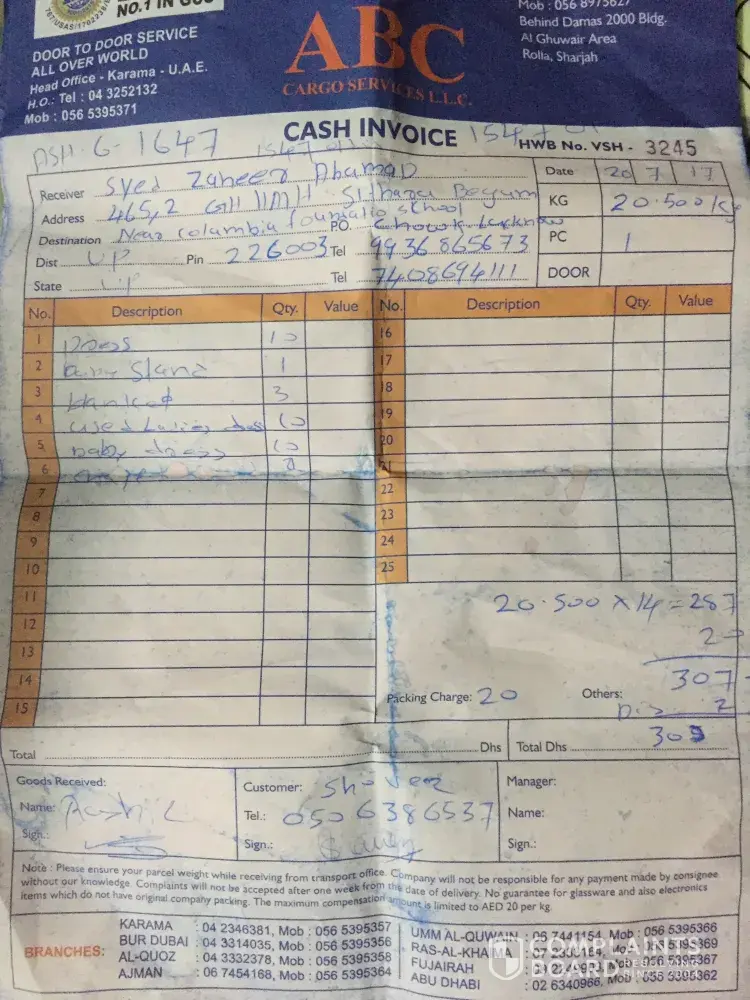 NO.1 IN GULF
DOOR TO DOOR SERVICE
ALL OVER WORLD
Head Office - Karama - U.A.E.
H.O.: Tel : 04 3252132
Mob : 056 5395371
ABC
CARGO SERVICES L.L.C.
Mob : 056 8975627
Behind Damas 2000 Bldg.
Al Ghuwair Area
Rolla, Sharjah
ASH-6-1647
CASH INVOICE
HWB No. VSH - 3245
Receiver Syed Zaheer Ahamad
Date 20 7 17
Address 465,2 GH IIMH Sithara Begum
KG 20.500 kg
Destination Near columbia school
PO. Chowk Lucknow
PC 1
Dist UP Pin 226003 Tel 9936865673
State UP Tel 7408694111
DOOR
No. Description Qty. Value No. Description Qty. Value
1 Dress 10 16
2 Stand 1 17
3 3 18
4 used Ladies 10 19
5 baby dress 10 20
6 21
7 22
8 23
9 24
10 25
11
12
13
14
15
20.500 X 14 = 287
307
Packing Charge: 20 Others:
Dis 2
Total Dhs Total Dhs 305
Goods Received:
Name:
Sign.:
Customer:
Tel.: 050 6386537
Sign.:
Manager:
Name:
Sign.:
Note : Please ensure your parcel weight while receiving from transport office. Company will not be responsible for any payment made by consignee
without our knowledge. Complaints will not be accepted after one week from the date of delivery. No guarantee for glassware and also electronics
items which do not have original company packing. The maximum compensation amount is limited to AED 20 per kg.
BRANCHES:
KARAMA : 04 2346381, Mob : 056 5395357
BUR DUBAI : 04 3314035, Mob : 056 5395356
AL-QUOZ : 04 3332378, Mob : 056 5395358
AJMAN : 06 7454168, Mob : 056 5395364
UMM AL-QUWAIN : 06 7441154, Mob : 056 5395366
RAS-AL-KHAIMA Mob : 056 5395369
FUJAIRAH Mob : 056 5395367
ABU DHABI : 02 6340966, Mob : 056 5395362
COMPLAINTS
BOARD